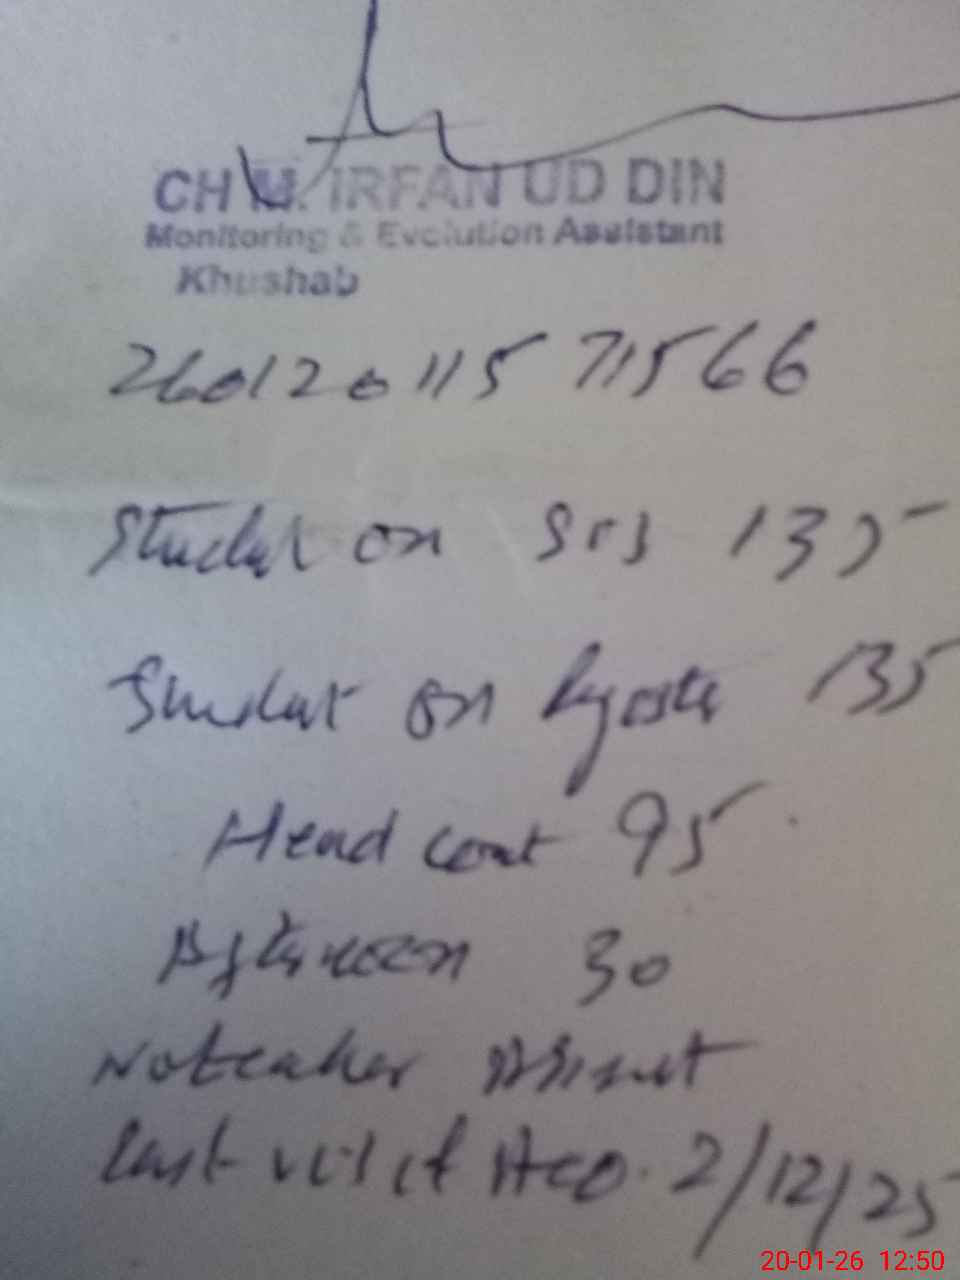 CH M. IRFAN UD DIN
Monitoring & Evolution Assistant
Khushab
26012011571566
Student on SIS 135
Student on Register 135
Head count 95
Afternoon 30
No teacher Absent
Last visit AEO. 2/12/25
20-01-26 12:50